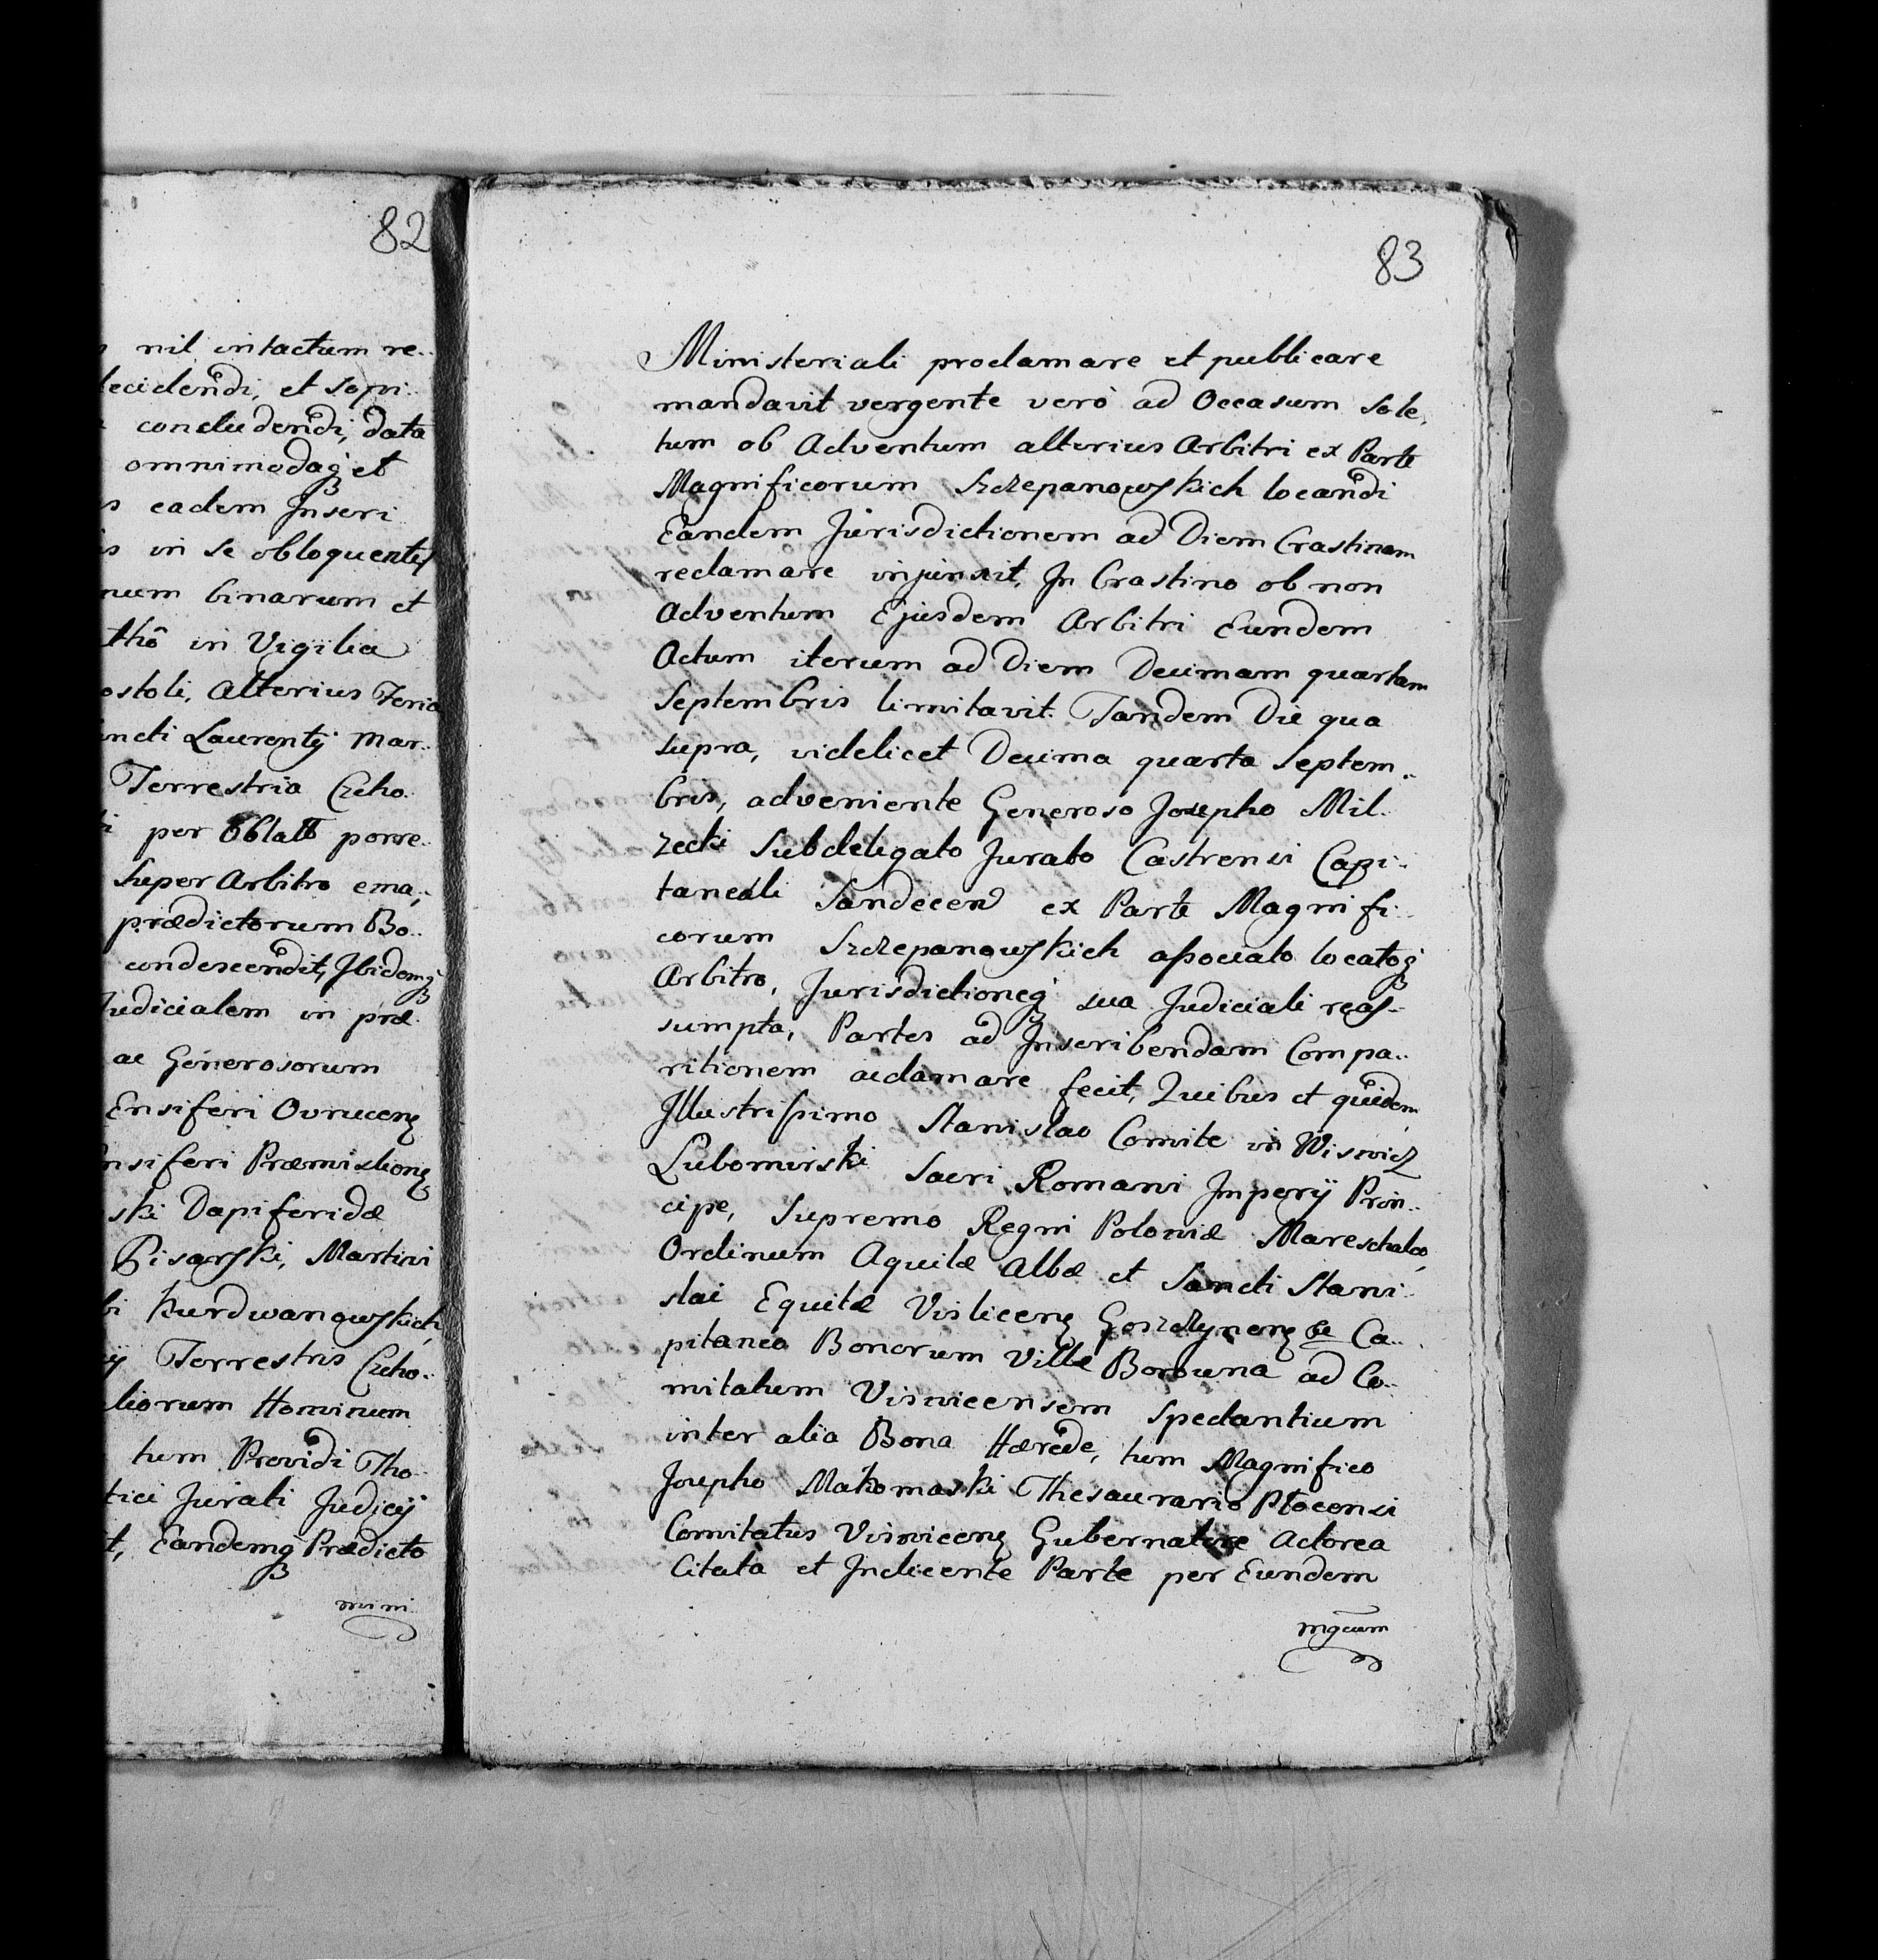 82
nil intactum re..
decidendi, et sopi..
concludendi, data
omnimodaq et
eadem Inseri
in se obloquentes
num binarum et
thô in Vigilia
ostoli, Alterius Feria
ncti Laurentij Mar..
Terrestria Czcho..
per Oblatt porre..
Super Arbitro ema..
prædictorum Bo..
condescendit, Ibidemq
Judicialem in præ..
ac Generosorum
Ensiferi Ovrucenz
nsiferi Præmislienz
ski Dapiferidæ
Pisarski, Martini
bi Kurdwanowskich
ij Terrestris Czcho..
liorum Hominum
tum Providi Tho..
tici Jurati Judicij
t, Eandemq Prædicto
mini
83
Ministeriali proclamare et publicare
mandavit vergente verò ad Occasum Sole,
tum ob Adventum alterius Arbitri ex Parte
Magnificorum Szczepanowskich locandi
Eandem Jurisdictionem ad Diem Crastinam
reclamare injunxit, In Crastino ob non
Adventum Ejusdem Arbitri Eundem
Actum iterum ad Diem Decimam quartam
Septembris limitavit. Tandem Die qua
supra, videlicet Decima quarta Septem..
bris, adveniente Generoso Josepho Mil..
zecki Subdelegato Jurato Castrensi Capi..
taneali Sandecen ex Parte Magnifi..
corum Szczepanowskich associato locatoq
Arbitro, Jurisdictioneq sua Judiciali reas..
sumpta, Partes ad Inscribendam Compa..
ritionem acclamare fecit, Quibus et quidem
Illustrissimo Stanislao Comite in Wisnicz
Lubomirski Sacri Romani Imperij Prin..
cipe, Supremo Regni Poloniæ Mareschalco,
Ordinum Aquilæ Albæ et Sancti Stani..
slai Equitæ Vislicenz Goszczynenz &c Ca..
pitaneo Bonorum Villæ Borowna ad Co..
mitatum Visnicensem spectantium
inter alia Bona Hærede, tum Magnifico
Josepho Makomaski Thesaurario Płocensi
Comitatus Visnicenz Gubernatore Actorea
Citata et Indicente Parte per Eundem
mgcum